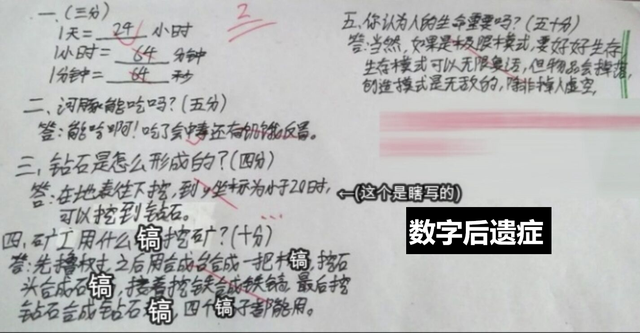 一、(三分)
1天= 24 小时
1小时= 64 分钟
1分钟= 64 秒
2
二、河豚能吃吗?(五分)
答:能吃啊!吃了会中毒还有饥饿反胃。
三、钻石是怎么形成的?(四分)
答:在地表往下挖,到y坐标为小于20时,
可以挖到钻石。
←(这个是瞎写的)
四、矿工用什么镐挖矿?(十分)
答:先撸树,之后用合成台合成一把木镐,挖石
头合成石镐,接着挖铁合成铁镐,最后挖
钻石合成钻石镐,四个镐子都能用。
五、你认为人的生命重要吗?(五十分)
答:当然,如果是极限模式,要好好生存
生存模式可以无限复活,但物品会掉落
创造模式是无敌的,除非掉入虚空。
数字后遗症